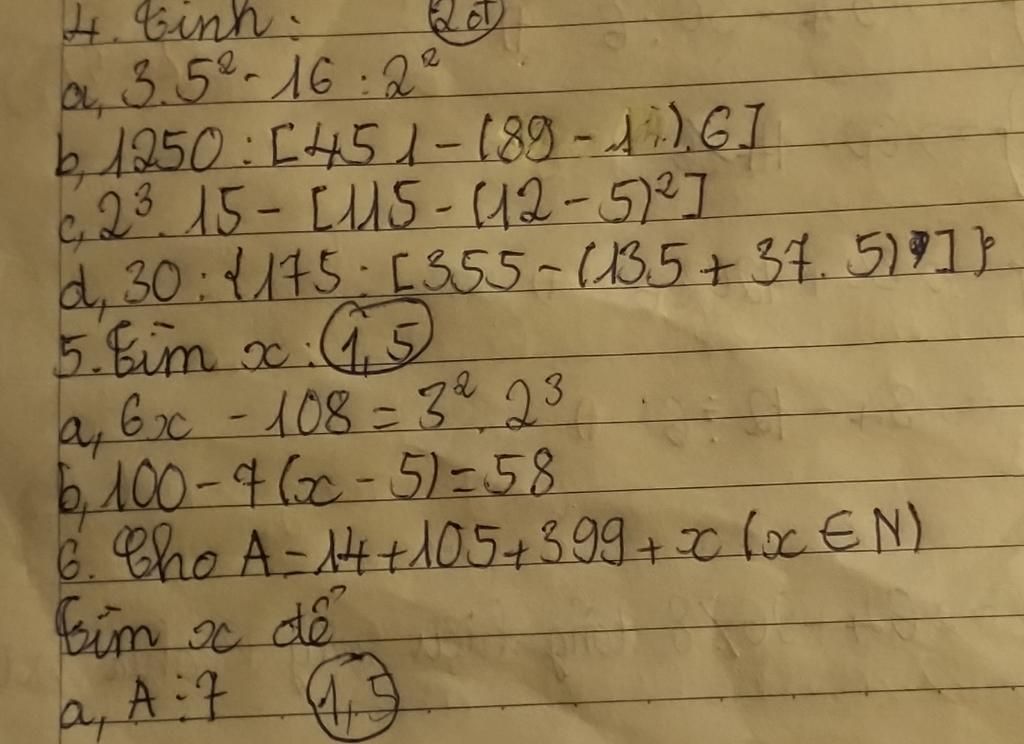 4. Tính: 2đ
a, 3.5² - 16 : 2²
b, 1250 : [451 - (89 - 1).6]
c, 2³. 15 - [115 - (12 - 5)²]
d, 30 : {175 : [355 - (135 + 37. 5)]}
5. Tìm x: 1,5
a, 6x - 108 = 3². 2³
b, 100 - 7(x - 5) = 58
6. Cho A = 14 + 105 + 399 + x (x ∈ N)
Tìm x để
a, A ⋮ 7 1,5